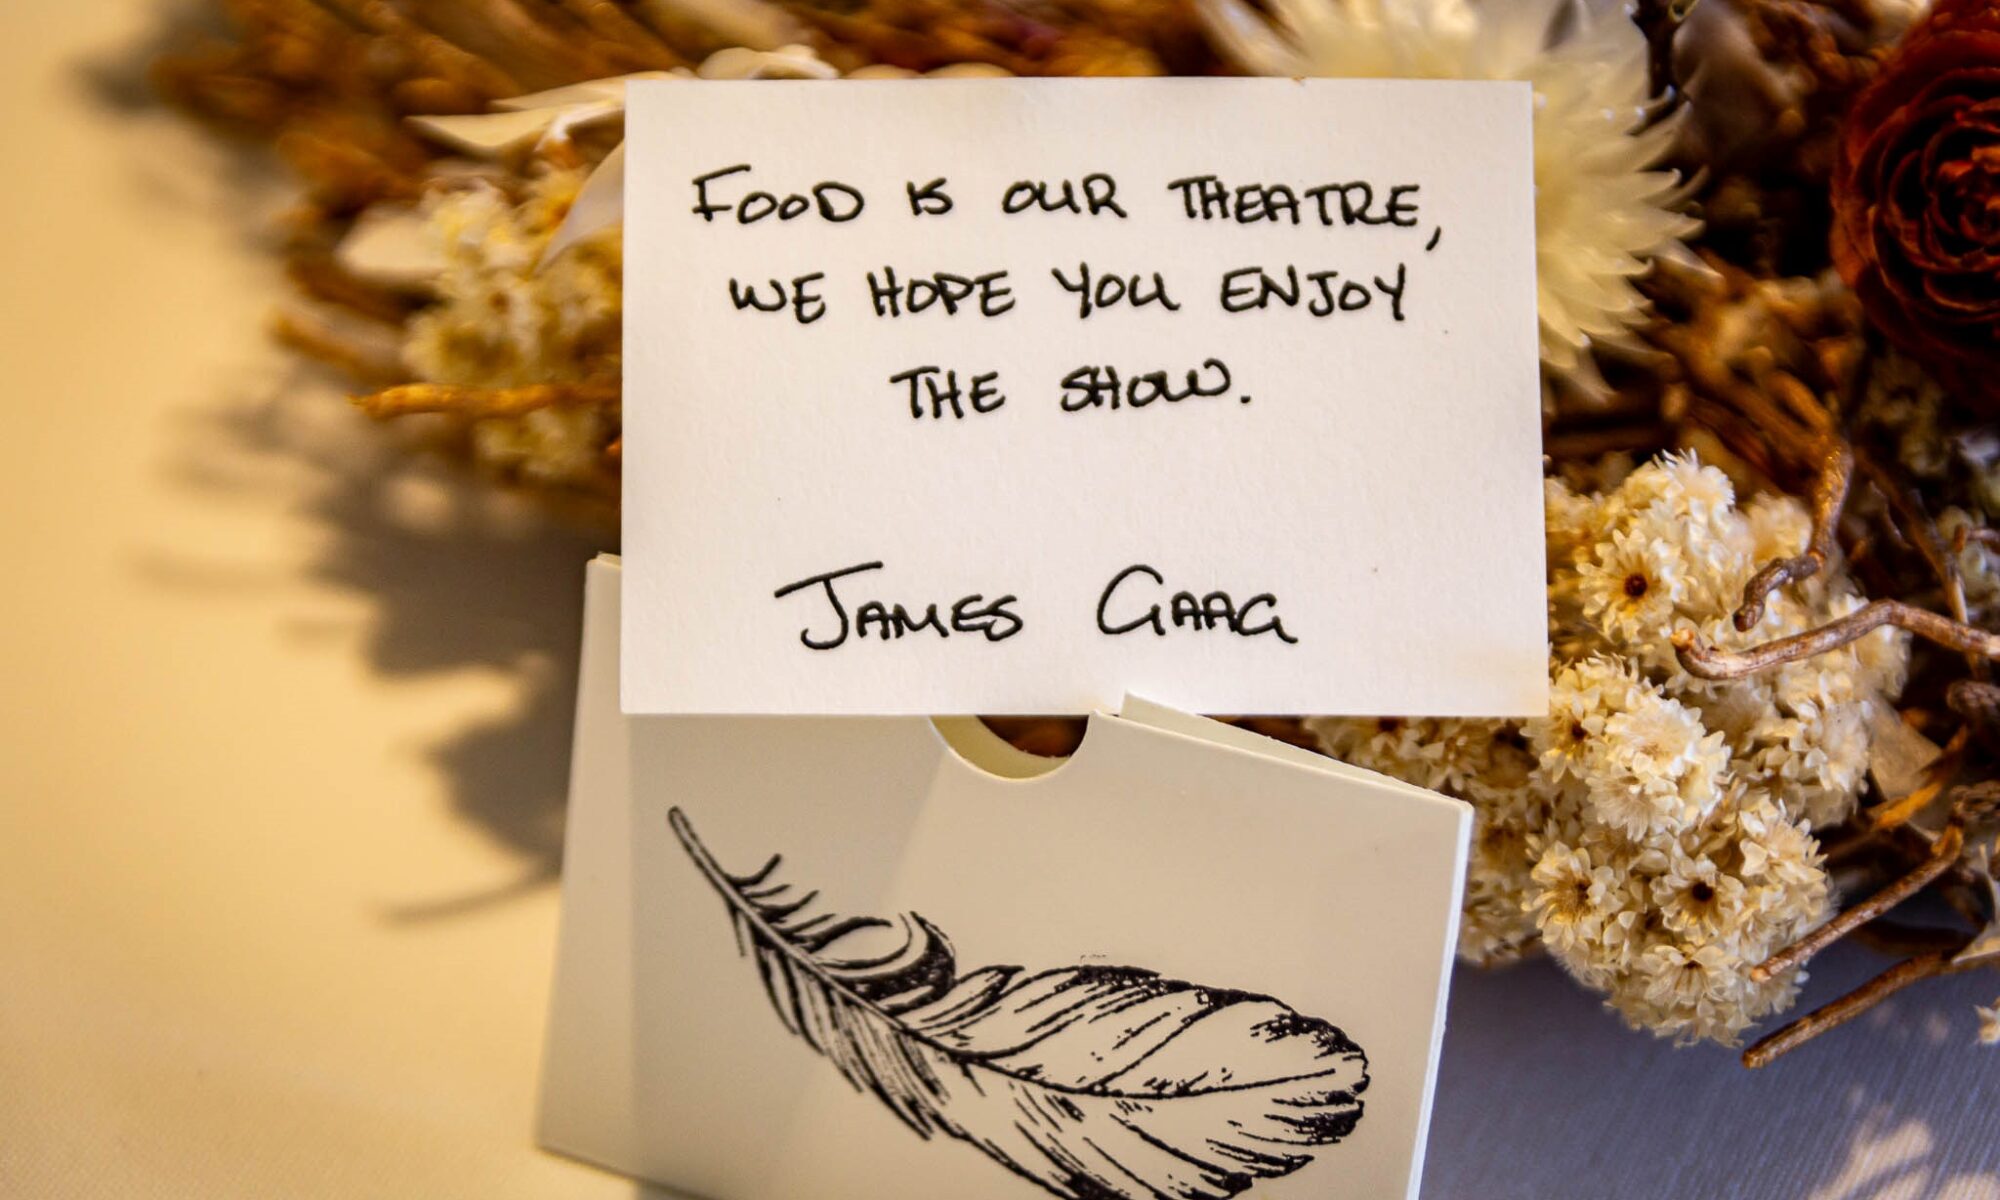 FOOD IS OUR THEATRE,
WE HOPE YOU ENJOY
THE SHOW.
JAMES GAAG